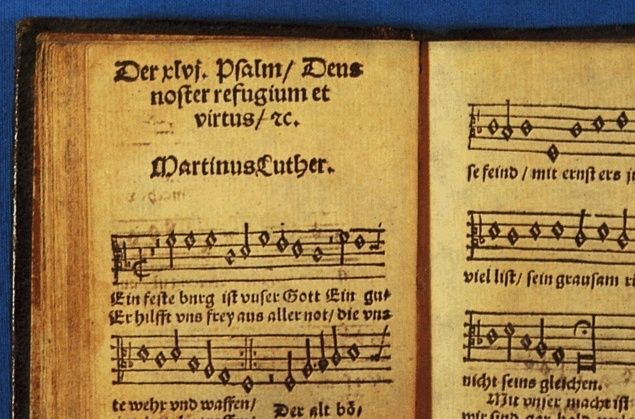 Der xlvj. Psalm/ Deus
noster refugium et
virtus/ ꝛc.
Martinus Luther.
Ein feste burg ist vnser Gott Ein gu⸗
Er hilfft vns frey aus aller not/ die vns
te wehr vnd waffen/
Der alt bö⸗
se feind / mit ernst ers
viel list/ sein grausam
nicht seins gleichen.
Mit vnser macht ist
wir sind gar bald